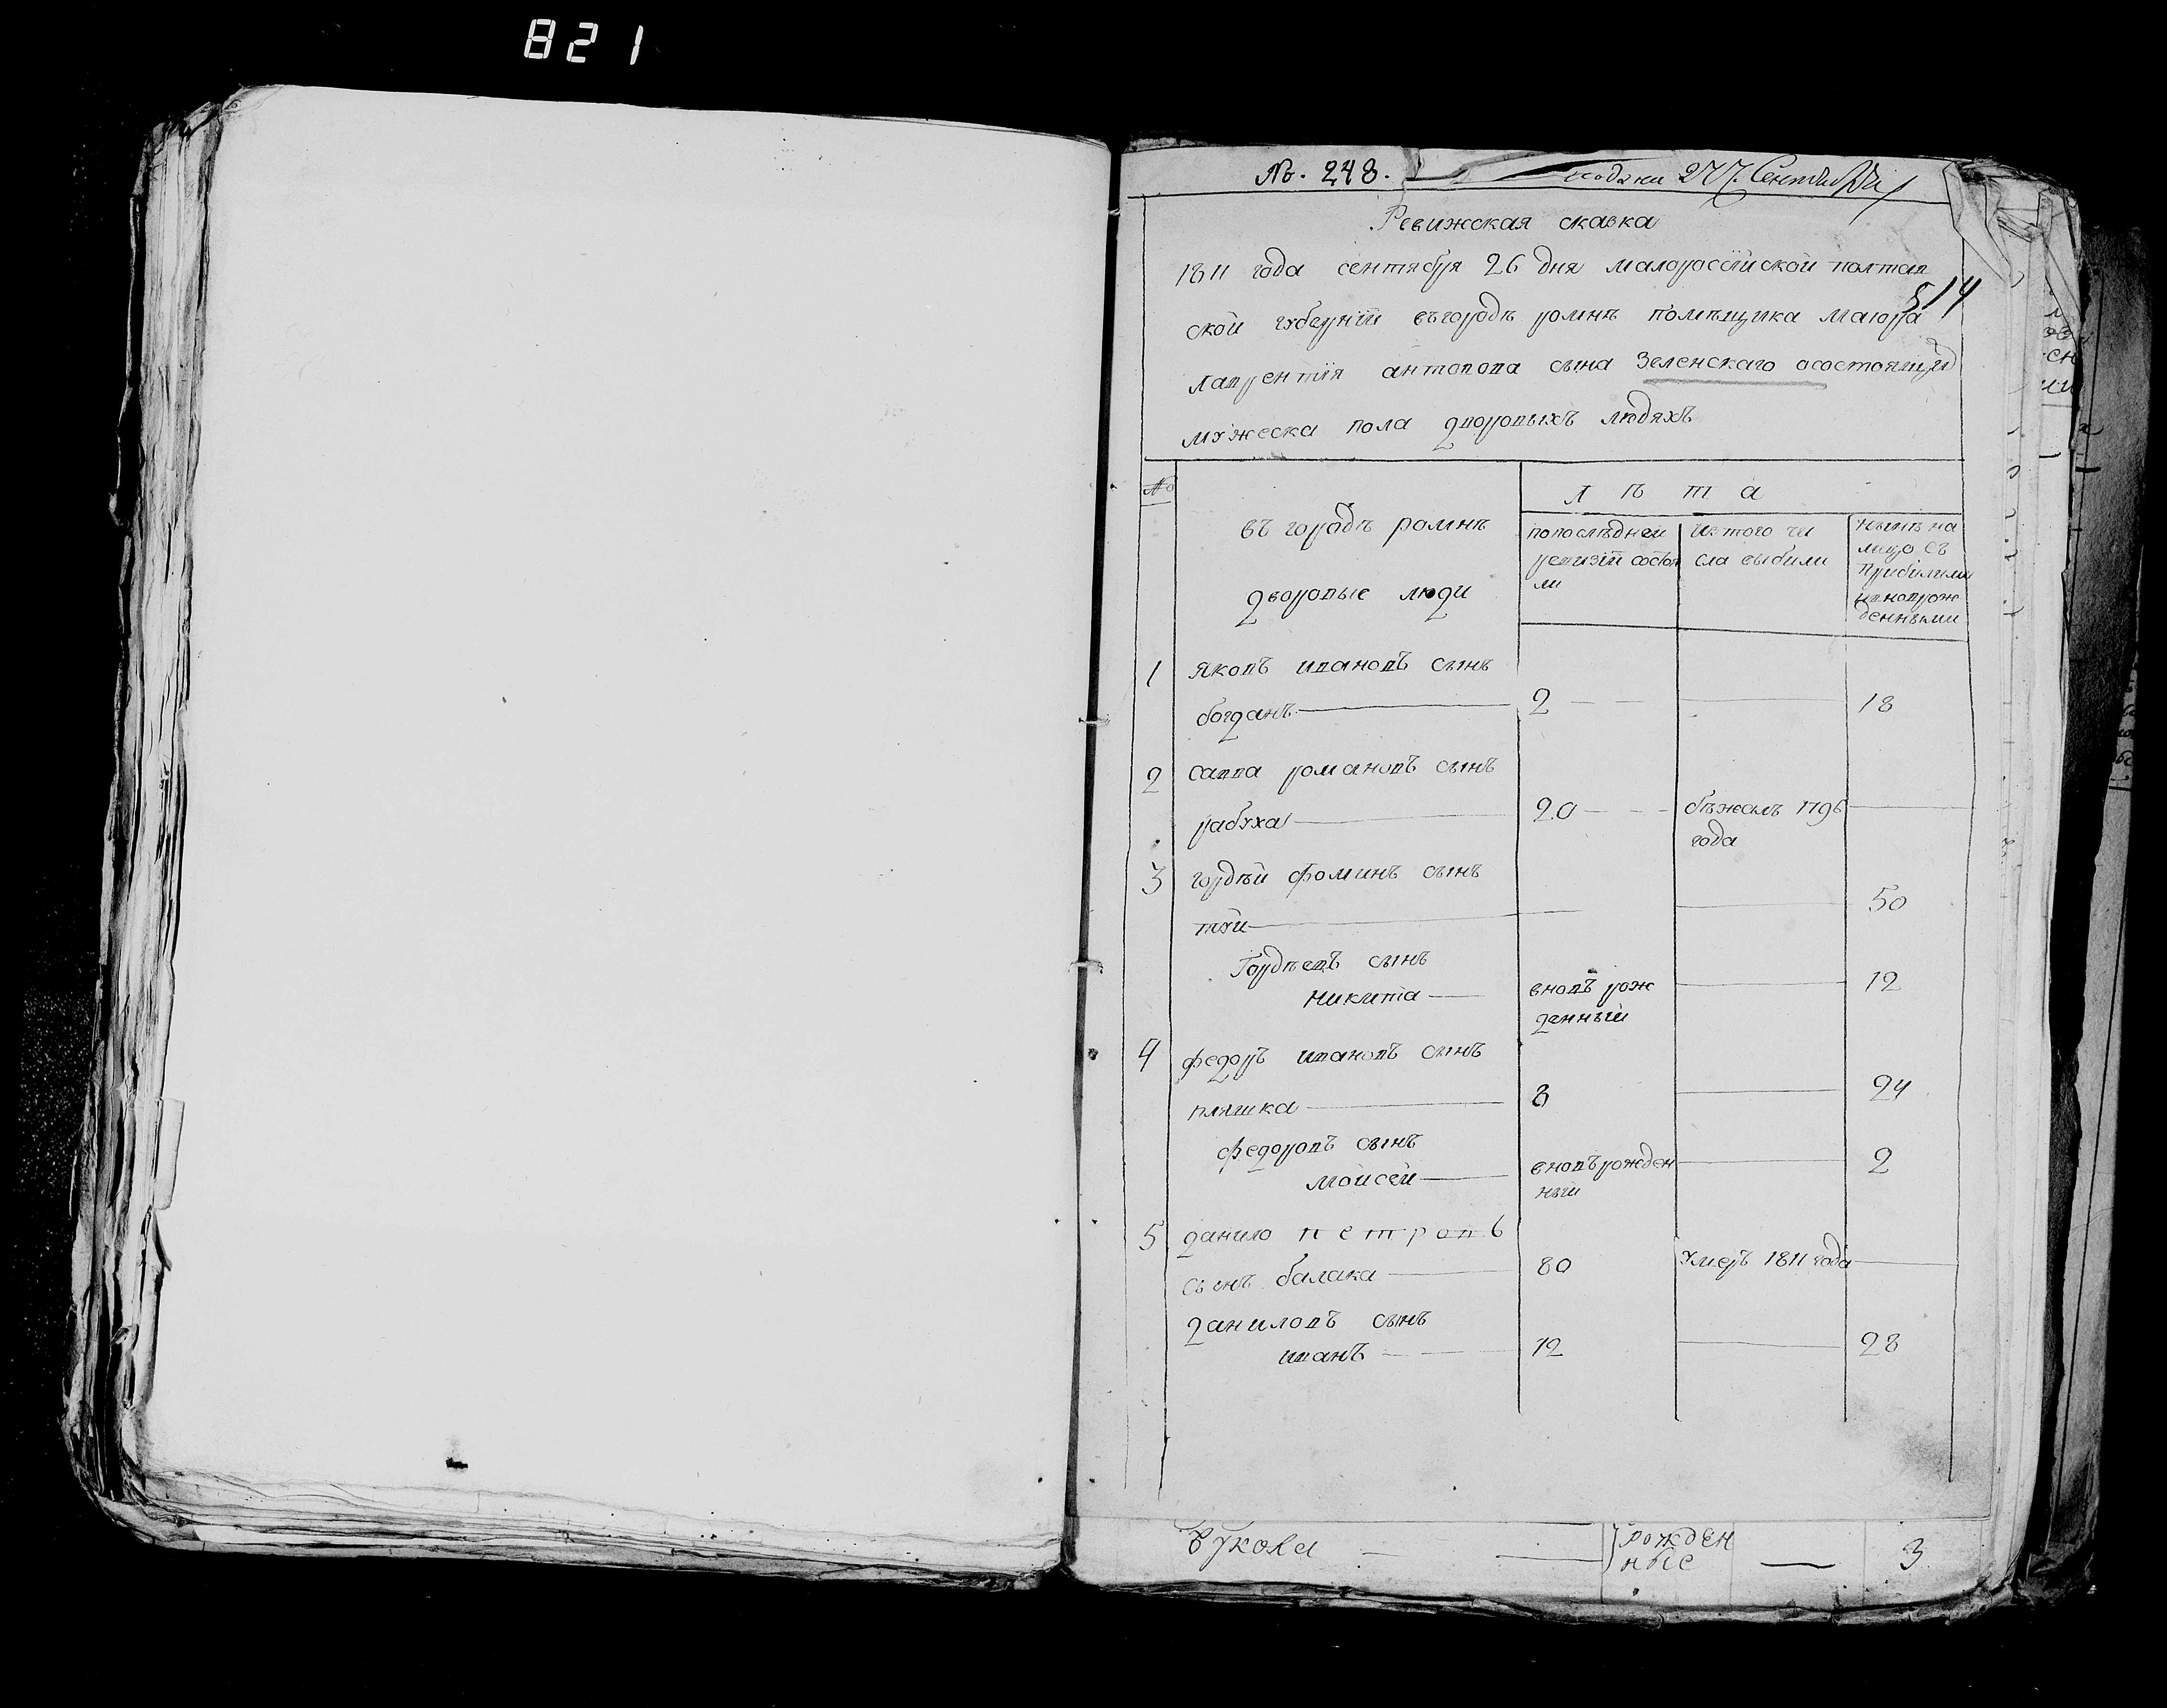 821
№. 248.
подана 27. Сентября
Ревижская сказка
1811 года сентября 26 дня малоросїйской полтав
514
ской губернїи въ городѣ ромнѣ помѣщика маиора
лаврентїя антонова сына Зеленскаго осостоящихъ
мужеска пола дворовыхъ людяхъ
№
лѣта
въ городѣ ромнѣ
дворовые люди
попоследней
ревизїи состоя
ли
изтого чи
сла выбыли
нынѣ на
лицо съ
прибылыми
ивновьрож
денными
1
яковъ ивановъ сынъ
богданъ
2
18
2
савва романовъ сынъ
рабуха
20
бѣжалъ 1796
года
3
гордѣй фоминъ сынъ
туй
50
Гордѣевъ сынъ
никита
вновъ рож
денный
12
4
федоръ ивановъ сынъ
пляшка
8
24
федоровъ сынъ
мойсей
вновърожден
ный
2
5
данило петровъ
сынъ балака
80
умеръ 1811 года
даниловъ сынъ
иванъ
12
28
рожден
ные
3